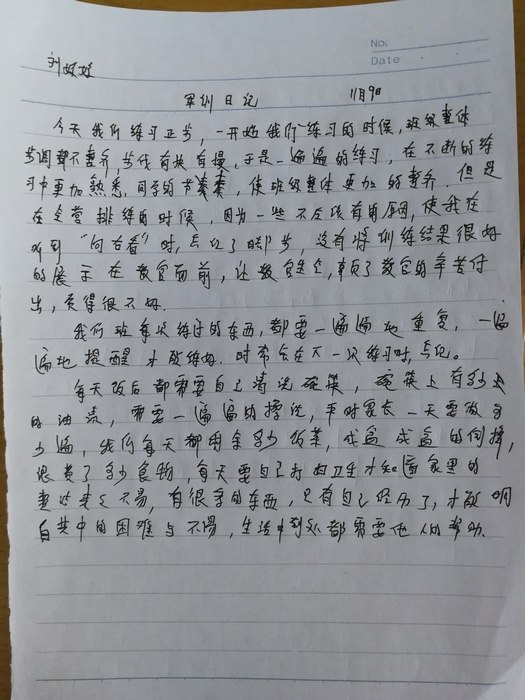 No.
Date
刘婷婷
军训日记 11月9日
今天我们练习正步,一开始我们练习的时候,班级整体
步调都不整齐,步伐有快有慢,于是一遍遍的练习,在不断的练
习中更加熟悉,同学的节奏,使班级整体更加的整齐.但是
在全营排练的时候,因为一些不应该有的原因,使我在
听到“向右看”时,忘记了踢步,没有将训练结果很好
的展示在教官面前,让教官,辜负了教官的辛苦付
出,觉得很不好.
我们班每次练过的东西,都要一遍遍地重复,一遍
遍地提醒才能练好.时常会在下一次练习时,忘记。
每天饭后都需要自己清洗碗筷,碗筷上有多少
的油渍,需要一遍遍的擦洗,平时家长一天要做多
少遍,我们每天都剩余多少饭菜,成盆成盆的倒掉,
浪费了多少食物,每天要自己打扫卫生才知道家里的
整洁来之不易,有很多的东西,只有自己经历了,才能明
白其中的困难与不易,生活中到处都需要他人的帮助.